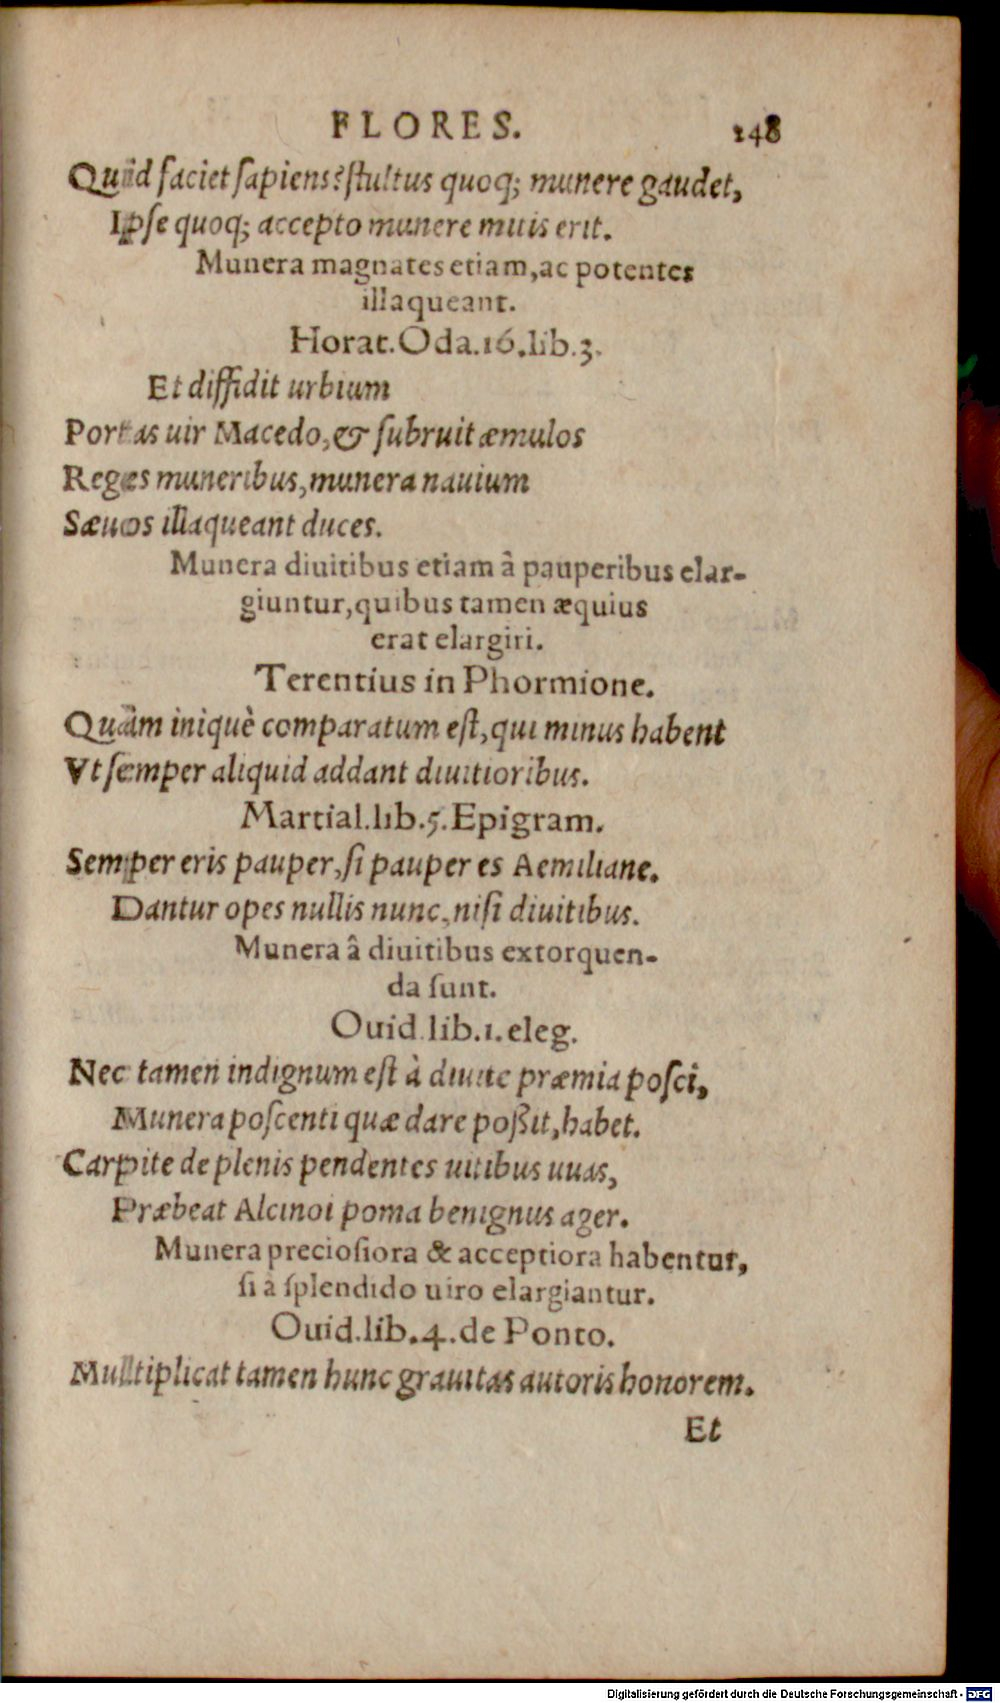 FLORES. 148
Quid faciet sapiens? stultus quoq; munere gaudet,
Ipse quoq; accepto munere mitis erit.
Munera magnates etiam, ac potentes
illaqueant.
Horat. Oda. 16. lib. 3.
Et diffidit urbium
Portas uir Macedo, & subruit æmulos
Reges muneribus, munera nauium
Sæuos illaqueant duces.
Munera diuitibus etiam â pauperibus elar-
giuntur, quibus tamen æquius
erat elargiri.
Terentius in Phormione.
Quàm iniquè comparatum est, qui minus habent
Vt semper aliquid addant diuitioribus.
Martial. lib. 5. Epigram.
Semper eris pauper, si pauper es Aemiliane.
Dantur opes nullis nunc, nisi diuitibus.
Munera â diuitibus extorquen-
da sunt.
Ouid. lib. 1. eleg.
Nec tamen indignum est à diuite præmia posci,
Munera poscenti quæ dare poßit, habet.
Carpite de plenis pendentes uitibus uuas,
Præbeat Alcinoi poma benignus ager.
Munera preciosiora & acceptiora habentur,
si à splendido uiro elargiantur.
Ouid. lib. 4. de Ponto.
Multiplicat tamen hunc grauitas autoris honorem.
Et
Digitalisierung gefördert durch die Deutsche Forschungsgemeinschaft - DFG